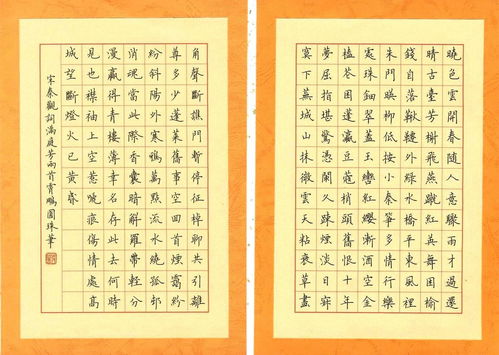 曉色雲開春隨人意驟雨才過還
晴古臺芳榭飛燕蹴紅英舞困榆
錢自落鞦韆外綠水橋平東風裡
朱門映柳低按小秦箏多情行樂
處珠鈿翠蓋玉轡紅纓漸酒空金
榼花困蓬瀛豆蔻梢頭舊恨十年
夢屈指堪驚憑闌久疎煙淡日寂
寞下蕪城山抹微雲天粘衰草畫
角聲斷譙門暫停征棹聊共引離
尊多少蓬萊舊事空回首煙靄紛
紛斜陽外寒鴉萬點流水繞孤邨
消魂當此際香囊暗解羅帶輕分
漫贏得青樓薄幸名存此去何時
見也襟袖上空惹啼痕傷情處高
城望斷燈火已黃昏
宋秦觀詞滿庭芳兩首霄鵬圓珠筆